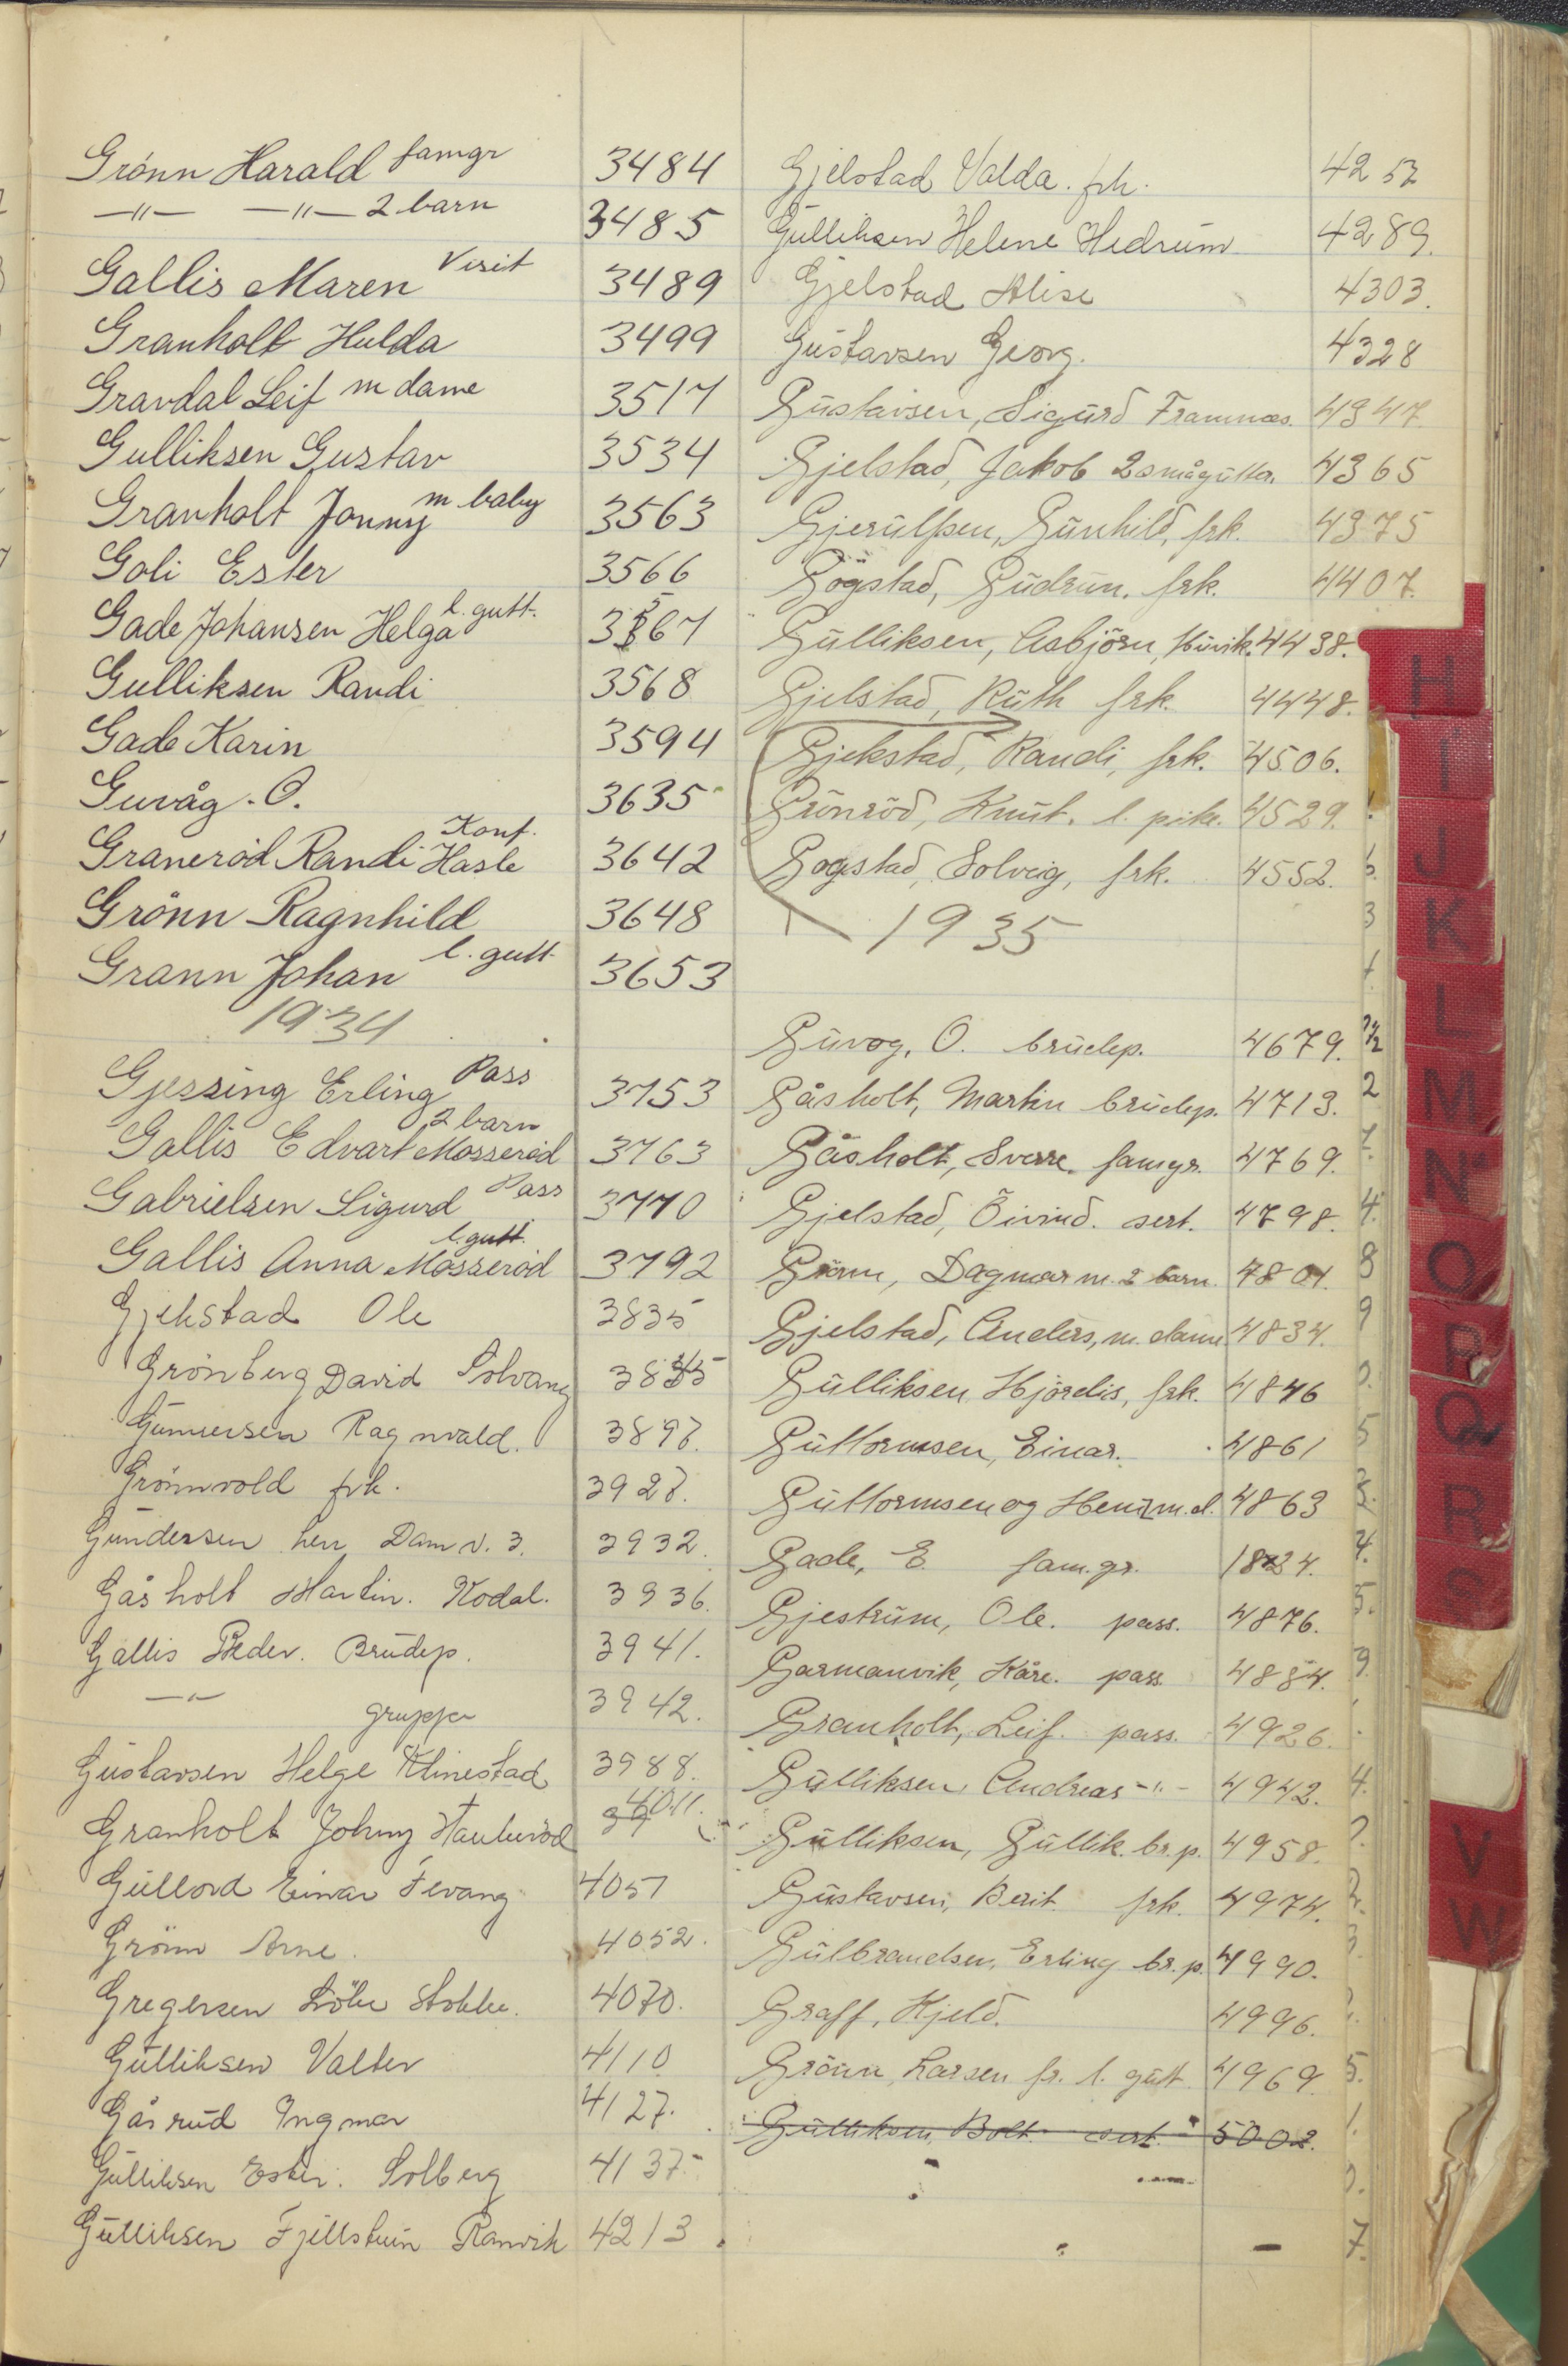 Grönn Harald famgr 3484
—"— —"— 2 barn 3485
Gallis Maren Visit 3489
Granholt Hulda 3499
Gravdal Leif m dame 3517
Gulliksen Gustav 3534
Granholt Jonny m baby 3563
Goli Ester 3566
Gade Johansen Helga l. gutt. 3567
Gulliksen Randi 3568
Gade Karin 3594
Guvåg. O. 3635
Graneröd Randi Hasle Konf. 3642
Grönn Ragnhild 3648
Grann Johan l. gutt 3653
1934
Gjessing Erling Pass 3753
Gallis Edvart Mosseröd 2 barn 3763
Gabrielsen Sigurd Pass 3770
Gallis Anna Mosseröd l. gutt. 3792
Gjekstad Ole 3835
Grönberg David Solvang 3845
Gunnersen Ragnvald. 3897.
Grönnvold frk. 3927.
Gundersen herr Dam v. 3. 3932.
Gåsholt Martin. Kodal. 3936.
Gallis Peder. Brudep. 3941.
—"— gruppe 3942.
Gustavsen Helge Klinestad 3988.
Granholt Johny Haukeröd 4011.
Gullord Einar Fevang 4051
Grönn Arne. 4052.
Gregersen Stokke. 4070.
Gulliksen Valter 4110
Gåsrud Ingmar 4127.
Gulliksen Ester. Solberg 4137
Gulliksen Ranvik 4213
Gjelstad Valda. frk. 4252
Gulliksen Helene Hedrum 4289.
Gjelstad Alise 4303.
Gustavsen Georg. 4328
Gustavsen, Sigurd Framnæs. 4347.
Gjelstad, Jakob 2 smågutter. 4365
Gjerulfsen, Gunhild, frk. 4375
Gögstad, Gudrun. frk. 4407.
Gulliksen, Asbjörn, Huvik. 4438.
Gjelstad, Ruth frk. 4448.
Gjekstad, Randi, frk. 4506.
Grönröd, Knut. l. pike. 4529.
Gogstad, Solveig, frk. 4552.
1935
Guvog, O. brudep. 4679.
Gåsholt, Martin brudep. 4713.
Gåsholt, Sverre. famgr. 4769.
Gjelstad, Öivind. sert. 4798.
Grönn, Dagmar m. 2 barn. 4801.
Gjelstad, Anders, m. dame 4834.
Gulliksen Hjördis, frk. 4846
Guttormsen, Einar. 4861
Guttormsen og m.d. 4863
Gade, E. fam.gr.
Gjestrum, Ole. pass. 4876.
Garmanvik, Kåre. pass. 4884.
Granholt, Leif. pass. 4926.
Gulliksen, Andreas -"- 4942.
Gulliksen, Gullik. br. p. 4958.
Gustavsen, Berit frk. 4974.
Gulbrandsen, Erling br. p. 4990.
Graff, Kjeld. 4996.
Grönn, Larsen fr. l. gutt. 4969.
Gulliksen, Bolt. sert. 5002.
H
I
J
K
L
M
N
O
P
Q
R
S
V
W